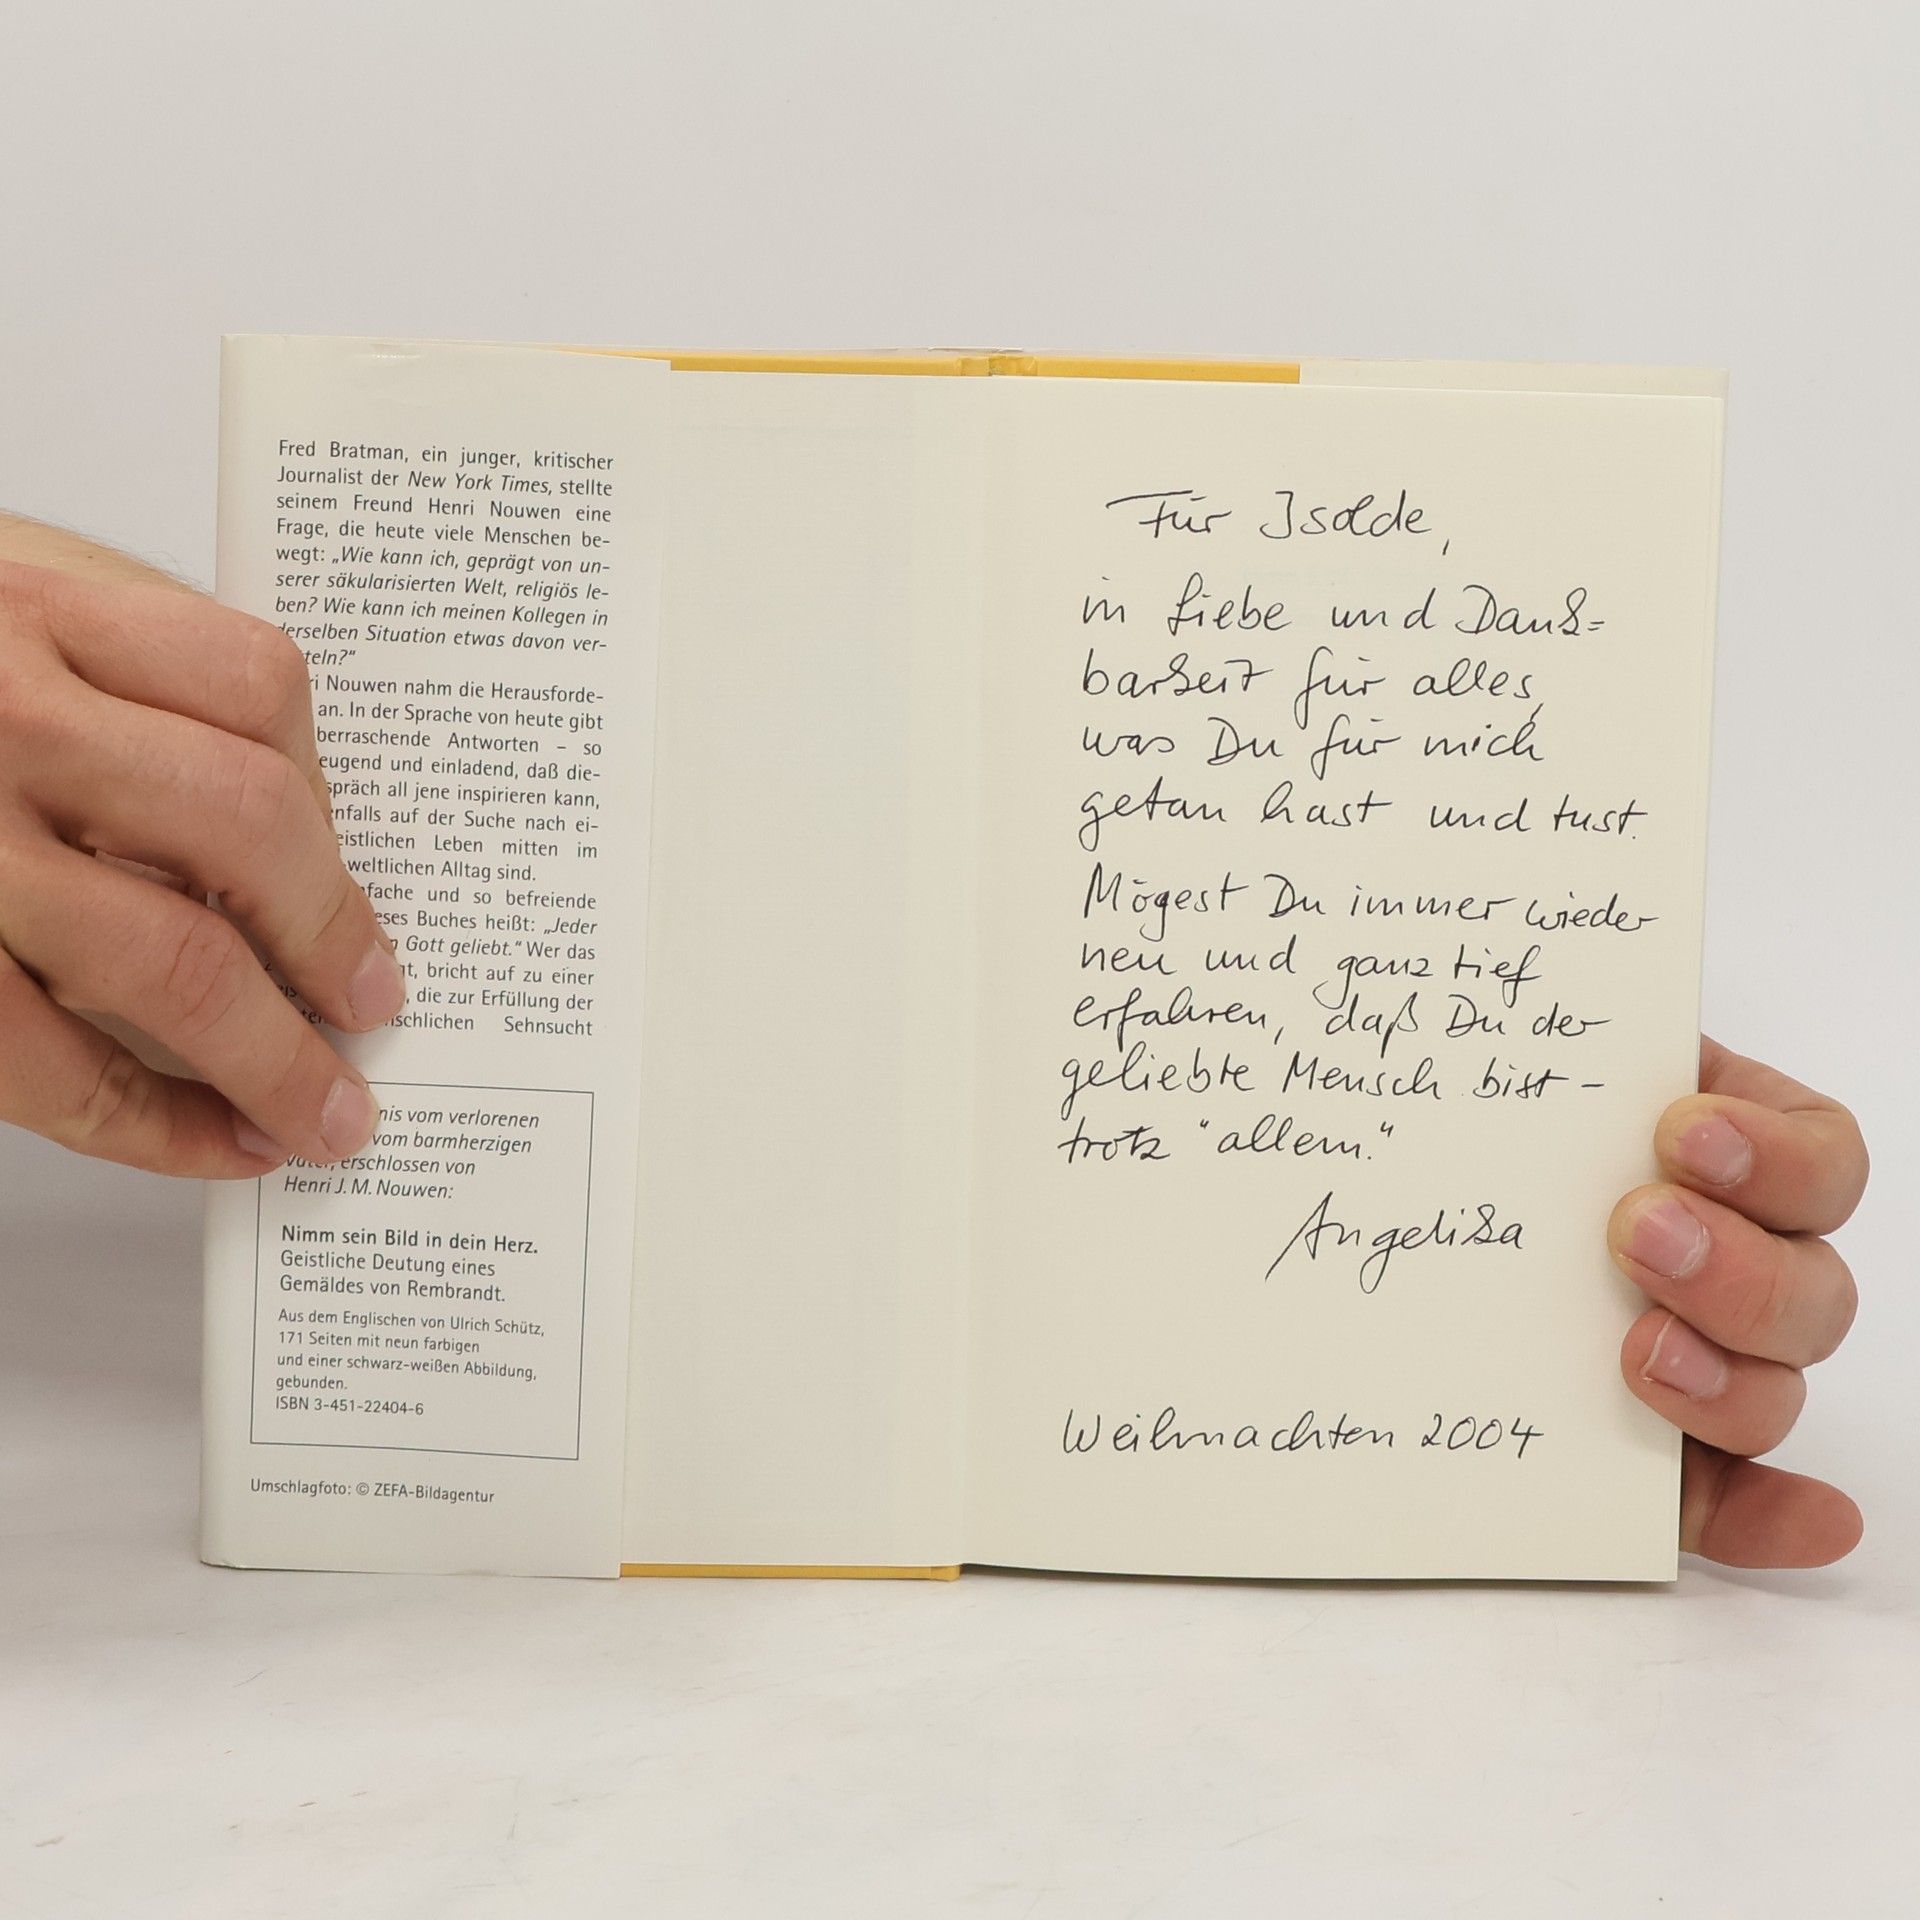 Fred Bratman, ein junger, kritischer
Journalist der New York Times, stellte
seinem Freund Henri Nouwen eine
Frage, die heute viele Menschen be-
wegt: „Wie kann ich, geprägt von un-
serer säkularisierten Welt, religiös le-
ben? Wie kann ich meinen Kollegen in
derselben Situation etwas davon ver-
teln?“
ri Nouwen nahm die Herausforde-
an. In der Sprache von heute gibt
berraschende Antworten – so
eugend und einladend, daß die-
spräch all jene inspirieren kann,
enfalls auf der Suche nach ei-
eistlichen Leben mitten im
-weltlichen Alltag sind.
nfache und so befreiende
eses Buches heißt: „Jeder
n Gott geliebt.“ Wer das
gt, bricht auf zu einer
, die zur Erfüllung der
schlichen Sehnsucht
nis vom verlorenen
vom barmherzigen
Vater, erschlossen von
Henri J. M. Nouwen:
Nimm sein Bild in dein Herz.
Geistliche Deutung eines
Gemäldes von Rembrandt.
Aus dem Englischen von Ulrich Schütz,
171 Seiten mit neun farbigen
und einer schwarz-weißen Abbildung,
gebunden.
ISBN 3-451-22404-6
Umschlagfoto: © ZEFA-Bildagentur
Für Isolde,
in Liebe und Dank=
barkeit für alles,
was Du für mich
getan hast und tust.
Mögest Du immer wieder
neu und ganz tief
erfahren, daß Du der
geliebte Mensch bist –
trotz "allem."
Angelika
Weihnachten 2004